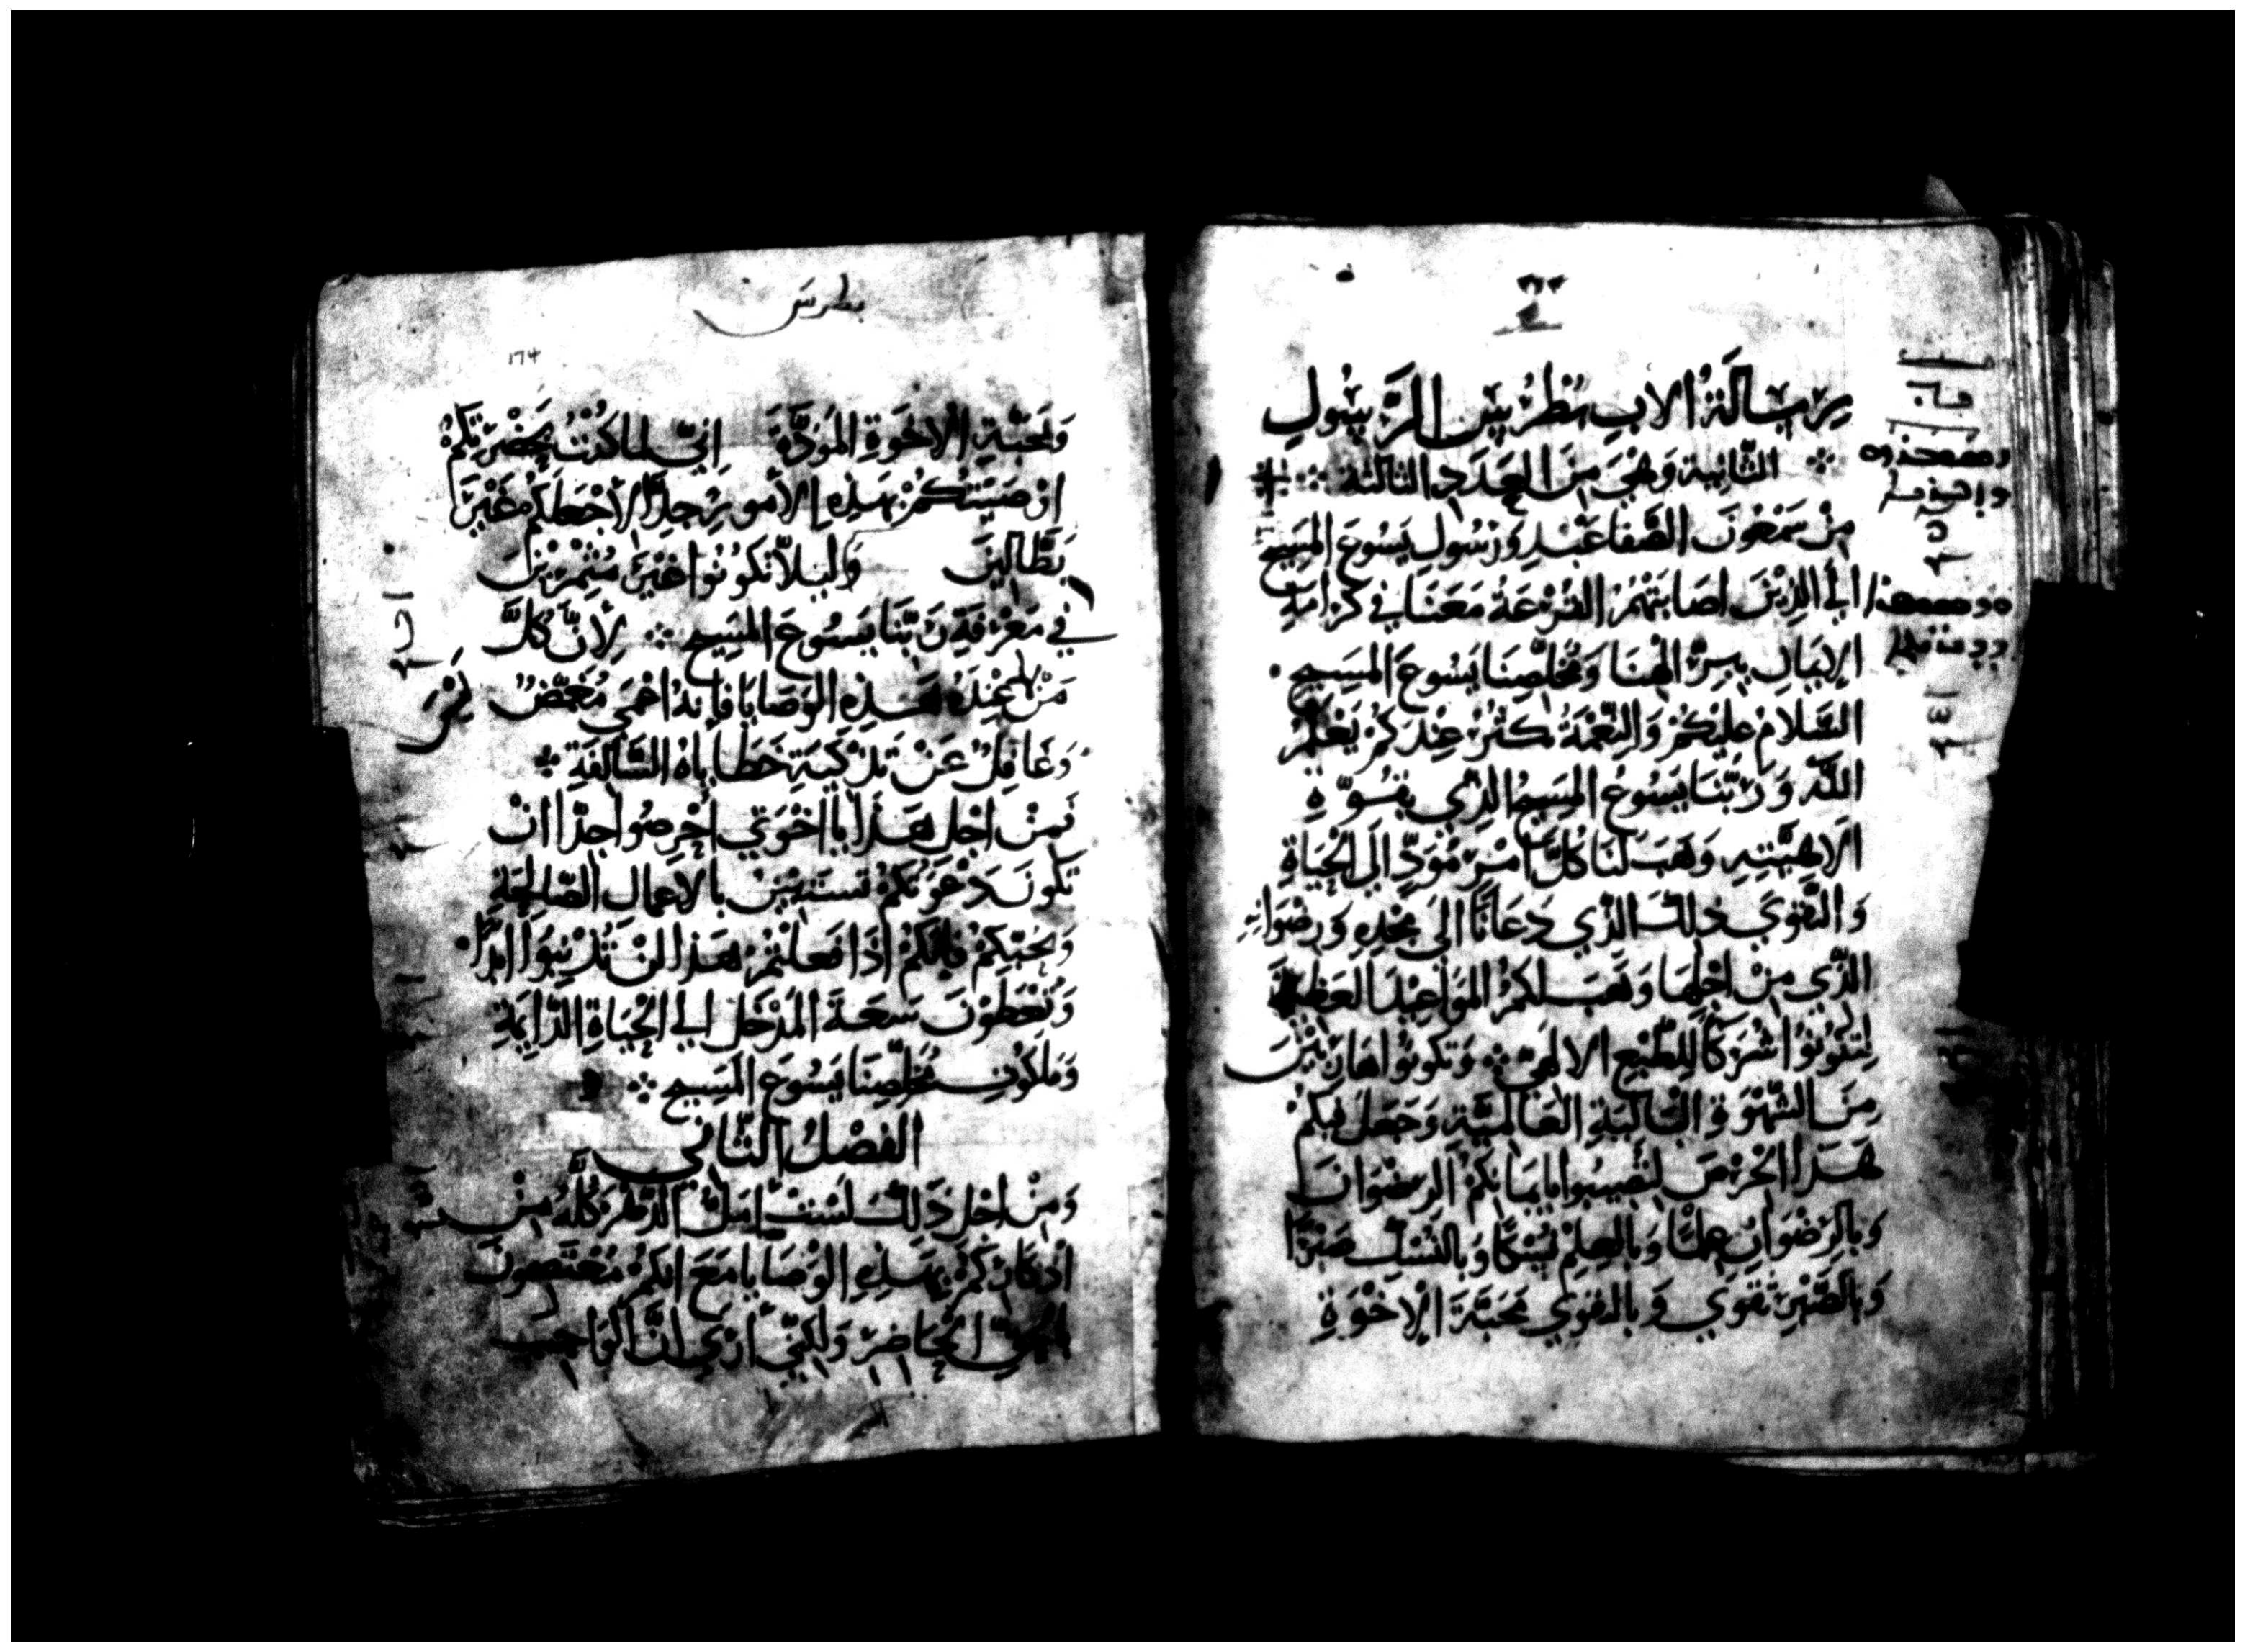 رِسَالَةُ الابِ بُطْرُسَ الرَّسُولِ
الثَّانِية وَهْيَ مِنَ العَدَدِ الثالثة
مِنْ سَمْعُونَ الصَّفا عَبْدِ وَرَسُولِ يَسُوعَ المَسِيحِ
الي الذِيْنَ اصَابَتْهُمُ القُرْعَةُ مَعَنَا فِي كَرَامَةِ
الإِيمَانِ بِبِرِّ الهنَا وَمُخَلِّصِنَا يَسُوعَ المَسِيحِ
السَّلامُ عَلَيْكُمْ وَالنِّعْمَةُ تكثُرُ عِنْدَكُمْ بِعِلْمِ
اللَّه وَرَبِّنَا يَسُوعُ المَسِيحُ الذِي بِقُوَّةِ
الَاهِيَّتِهِ وَهَبَ لَنَا كُلَّ امْرٍ مُوَدٍّ اِلَى الحَيَاةِ
وَالتَّقوَي ذلِكَ الَّذِي دَعَانَا الَى مَجْدِهِ وَرِضْوَانِهِ
الَّذِي مِنْ اجْلِهَا وَهَبَ لَكمُ المَوَاعِيْدَ العَظِيمَةَ
لِتَكُونُوا شُرَكَا لِلطَّبْعِ الالهِيِّ وَتكونُوا هَارِبِيْنَ
مِنَ الشَّهْوَةِ البَالِيَةِ العَالَمِيَّةِ وَجَعَلَ فِيكُمْ
هَذَا الحْرْصَ لِتُصِيبُوا بِايمَانِكُمْ الرِضْوَانَ
وَبِالرِضْوَانِ عِلْمًا وَبِالعِلْمِ نُسْكًا وَبالنُسْكِ صَبْرًا
وَبِالصَّبْرِ تقوَي وَبالتقوَي مَحَبَّةَ الْاخْوَةِ
بطرس
174
وَمَحَبَّةِ الْاخْوَةِ المَوَدَّةَ اِنِّي لما كُنْتُ بِحَضْرَتِكُمْ
اوْصَيْتُكُمْ بِهَذِهِ الأمُورِ جِدًّا لِأجْعَلَكُم غَيْرَ
بَطَّالِينَ وَلِيَلَّا تكُونُوا غَيْرَ مُثْمِرِيْنَ
فِي مَعْرِفَةِ رَبِّنَا يَسُوعَ المَسِيحِ لِأنَّ كُلَّ
مَنْ لَيْسَ عِنْدَهُ هَذِهِ الوَصَايَا فَإنهُ اعْمَي مُغْمِّضٌ
وَغَافِلٌ عَنْ تَزْكِيَةِ خَطَايَاهُ السَّالِفَةِ
فَمِنْ اجْلِ هَذَا يا اخْوَتِي احْرِصُوا جِدًّا انْ
تكُونَ دَعْوَتكُمْ تسْتَبِيْنُ بالاعمالِ الصَّالِحَةِ
وَمحبَّتِكُمْ فانكُمْ اذَا فَعَلْتُمْ هَذا لنْ تُذْنِبُوا ابَدًا
وَتُعْطَوْنَ سَعَةَ المَدْخَلِ الي الحَيَاةِ الدَّايِمَةِ
وَمَلكُوتِ مُخَلِّصِنَا يَسُوعَ المَسِيحِ
الفَصْلُ الثَّانِي
وَمِنْ اجْلِ ذَلِكَ لَسْتُ امَلُّ الدَّهْرَ كُلَّهُ مِنْ
اذكَارِكُمْ بِهَذِهِ الوَصَايَا مَعَ انكُمْ مُعْتَصِمُونَ
الحَاضِرْ وَلَكِنِّي ارَي انَّ الوَاجِبَ